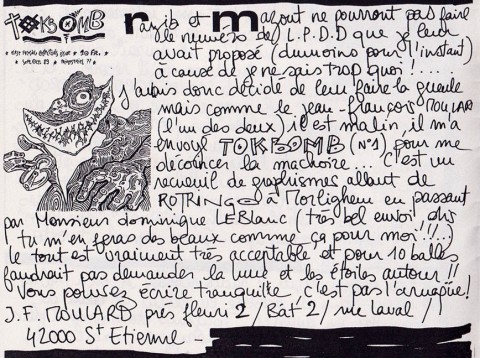 TOKBOMB
n arib et mazout ne pourront pas faire
le numéro de L.P.D.D que je leur
avait proposé (dumoins pour l'instant)
à cause de je ne sais trop quoi !.....
j'avais donc décidé de leur faire la gueule
mais comme le jean-françois MOULARD
(l'un des deux) il est malin, il m'a
envoyé TOKBOMB (N°1) pour me
décoincer la machoire... C'est un
recueil de graphismes allant de
ROTRING à Morlighem en passant
par Monsieur dominique LEBlanc (très bel envoi, dis
tu m'en feras des beaux comme ça pour moi !!...)
le tout est vraiment très acceptable et pour 10 balles
faudrait pas demander la lune et les étoiles autour !!
Vous pouvez écrire tranquille, c'est pas l'arnaque !
J.F. MOULARD près fleuri 2 / Bât 2 / rue Laval /
42000 St Etienne -